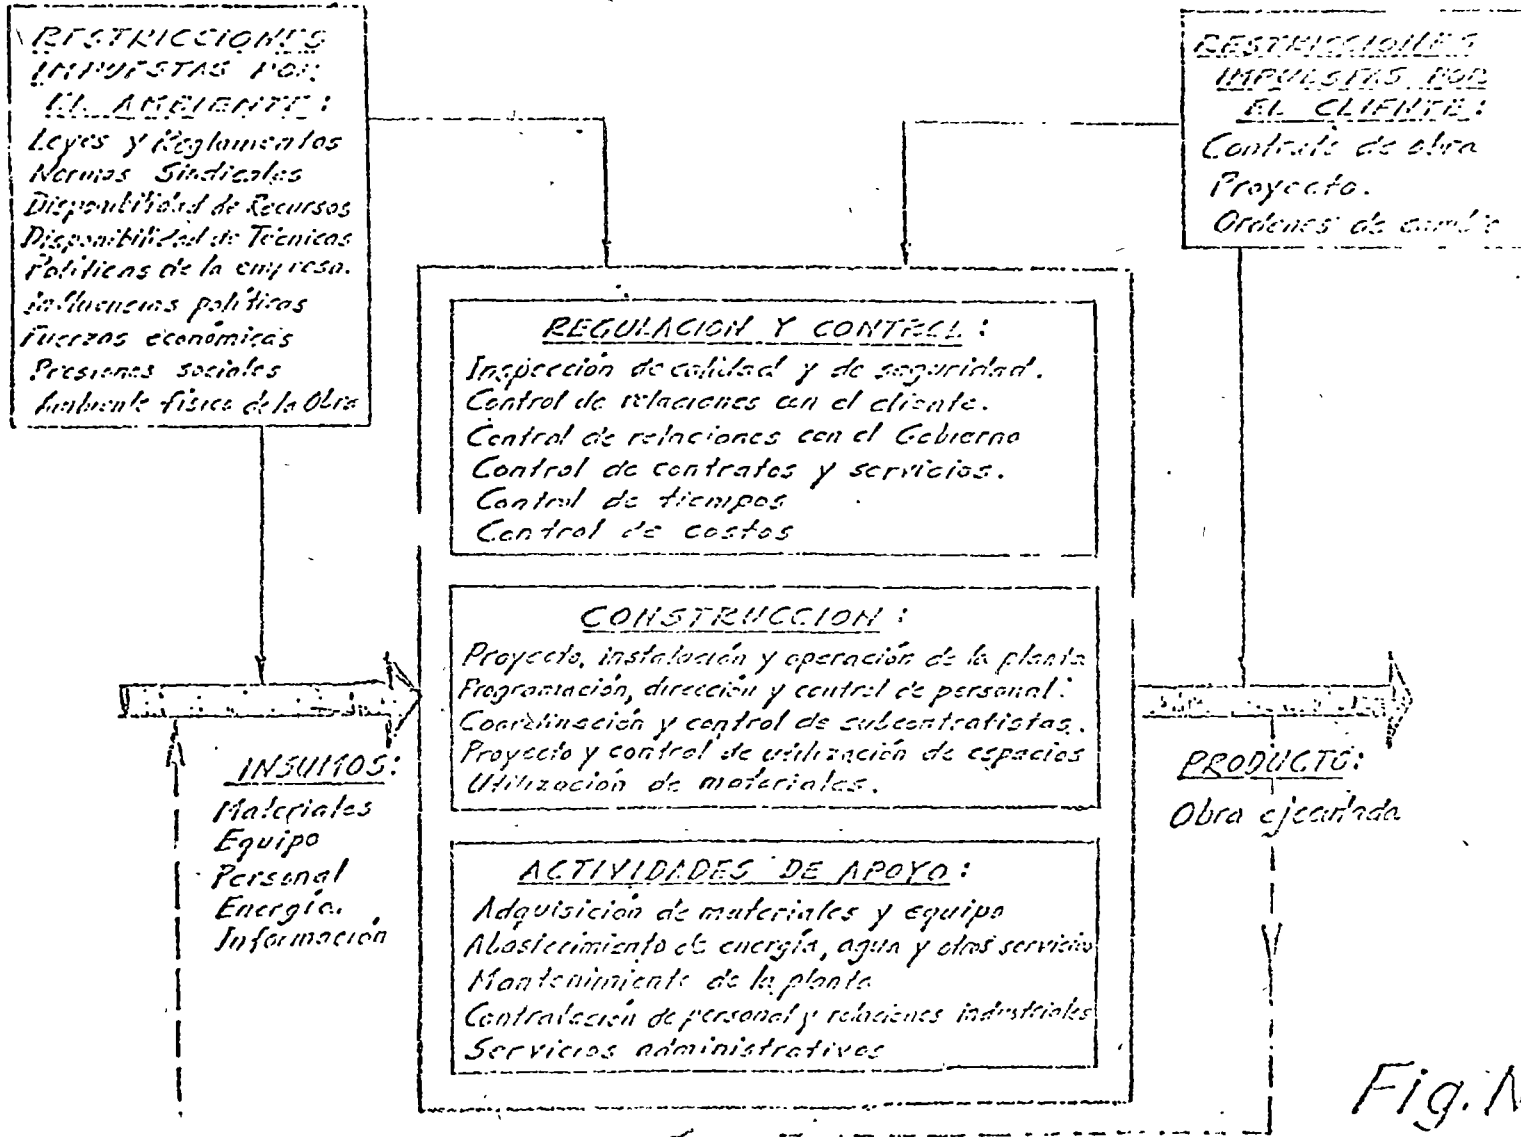 RESTRICCIONES
IMPUESTAS POR
EL AMBIENTE:
Leyes y Reglamentos
Normas Sindicales
Disponibilidad de Recursos
Disponibilidad de Técnicas
Políticas de la empresa.
Influencias políticas
Fuerzas económicas
Presiones sociales
Ambiente físico de la Obra
RESTRICCIONES
IMPUESTAS POR
EL CLIENTE:
Contrato de obra
Proyecto.
Ordenes de cambio
REGULACION Y CONTROL:
Inspección de calidad y de seguridad.
Control de relaciones con el cliente.
Control de relaciones con el Gobierno
Control de contratos y servicios.
Control de tiempos
Control de costos
CONSTRUCCION:
Proyecto, instalación y operación de la planta
Programación, dirección y control de personal.
Coordinación y control de subcontratistas.
Proyecto y control de utilización de espacios
Utilización de materiales.
INSUMOS:
Materiales
Equipo
Personal
Energía.
Información
PRODUCTO:
Obra ejecutada
ACTIVIDADES DE APOYO:
Adquisición de materiales y equipo
Abastecimiento de energía, agua y otros servicio
Mantenimiento de la planta
Contratación de personal y relaciones industriales
Servicios administrativos
Fig. N